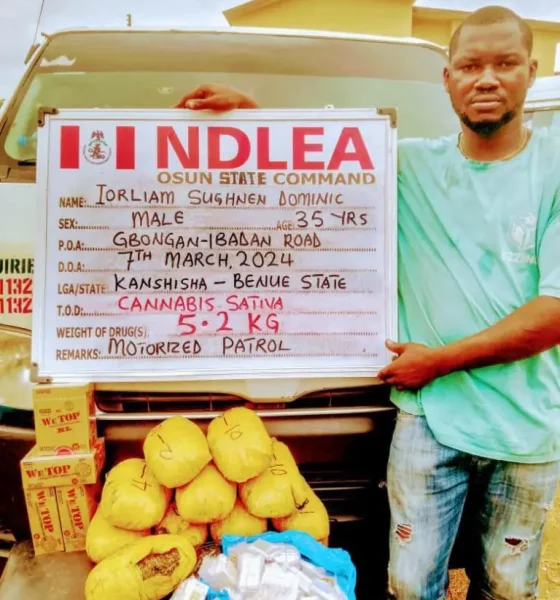 NDLEA
OSUN STATE COMMAND
NAME: IORLIAM SUGHNEN DOMINIC
SEX: MALE AGE: 35 YRS
P.O.A: GBONGAN-IBADAN ROAD
D.O.A: 7TH MARCH, 2024
LGA/STATE: KANSHISHA - BENUE STATE
T.O.D: CANNABIS SATIVA
WEIGHT OF DRUG(S): 5.2 KG
REMARKS: MOTORIZED PATROL
UIRIE
1132
1132
WE TOP
XL
WE TOP
WE TOP
WE TOP